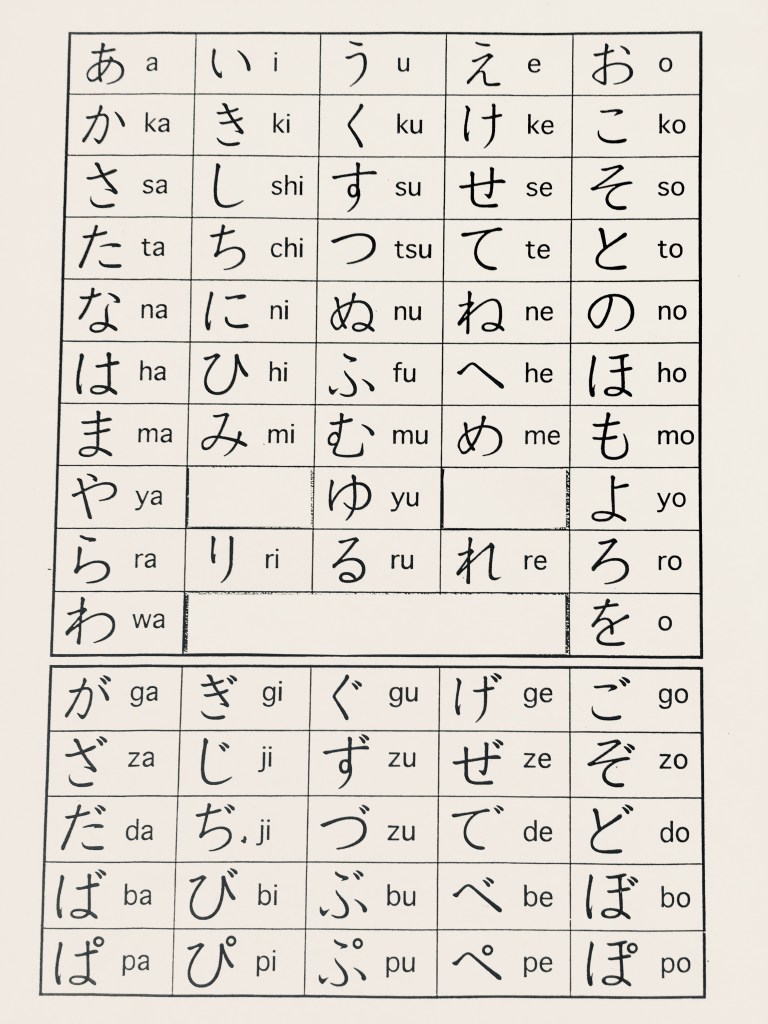 あ a い i う u え e お o
か ka き ki く ku け ke こ ko
さ sa し shi す su せ se そ so
た ta ち chi つ tsu て te と to
な na に ni ぬ nu ね ne の no
は ha ひ hi ふ fu へ he ほ ho
ま ma み mi む mu め me も mo
や ya ゆ yu よ yo
ら ra り ri る ru れ re ろ ro
わ wa を o
が ga ぎ gi ぐ gu げ ge ご go
ざ za じ ji ず zu ぜ ze ぞ zo
だ da ぢ ji づ zu で de ど do
ば ba び bi ぶ bu べ be ぼ bo
ぱ pa ぴ pi ぷ pu ぺ pe ぽ po